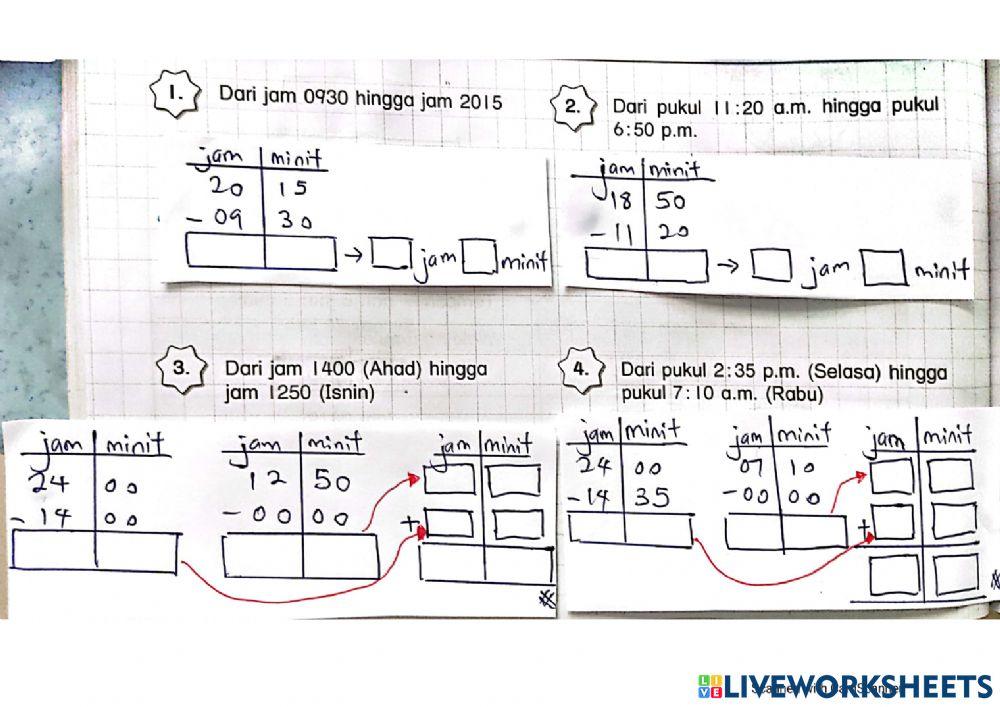 1. Dari jam 0930 hingga jam 2015
jam minit
20 15
- 09 30
→ jam minit
2. Dari pukul 11:20 a.m. hingga pukul
6:50 p.m.
jam minit
18 50
- 11 20
→ jam minit
3. Dari jam 1400 (Ahad) hingga
jam 1250 (Isnin)
jam minit
24 00
- 14 00
jam minit
12 50
- 00 00
jam minit
+
4. Dari pukul 2:35 p.m. (Selasa) hingga
pukul 7:10 a.m. (Rabu)
jam minit
24 00
- 14 35
jam minit
07 10
- 00 00
jam minit
+
LIVEWORKSHEETS